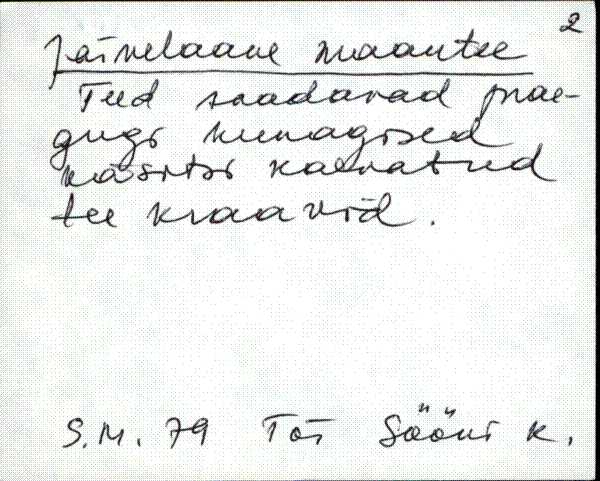 2
Järvelaane maantee
Teed saadavad prae-
gugi kunagised
käsitsi kaevatud
tee kraavid.
S.M. 79 Tõs Sööni k.